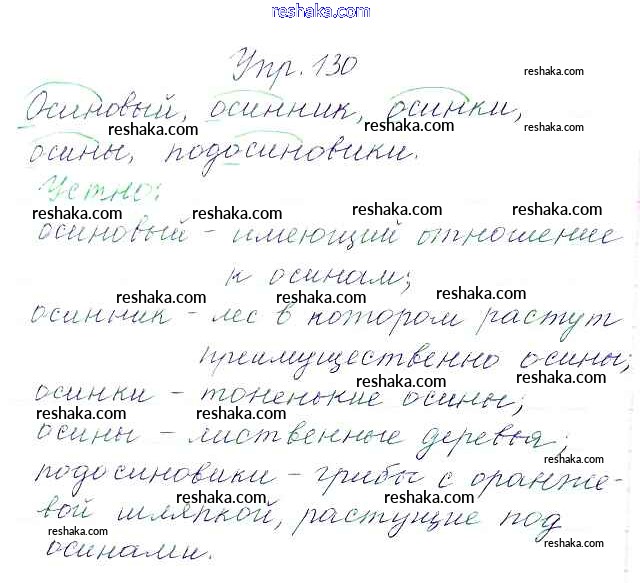 reshaka.com
Упр. 130
reshaka.com
Осиновый, осинник, осинки,
reshaka.com reshaka.com
осины, подосиновики.
reshaka.com
Устно:
reshaka.com reshaka.com reshaka.com reshaka.com
осиновый - имеющий отношение
к осинам;
reshaka.com reshaka.com reshaka.com
осинник - лес в котором растут
преимущественно осины;
reshaka.com reshaka.com reshaka.com
осинки - тоненькие осины;
reshaka.com reshaka.com reshaka.com
осины - лиственные деревья;
reshaka.com
подосиновики - грибы с оранже-
reshaka.com reshaka.com reshaka.com
вой шляпкой, растущие под
reshaka.com reshaka.com
осинами.